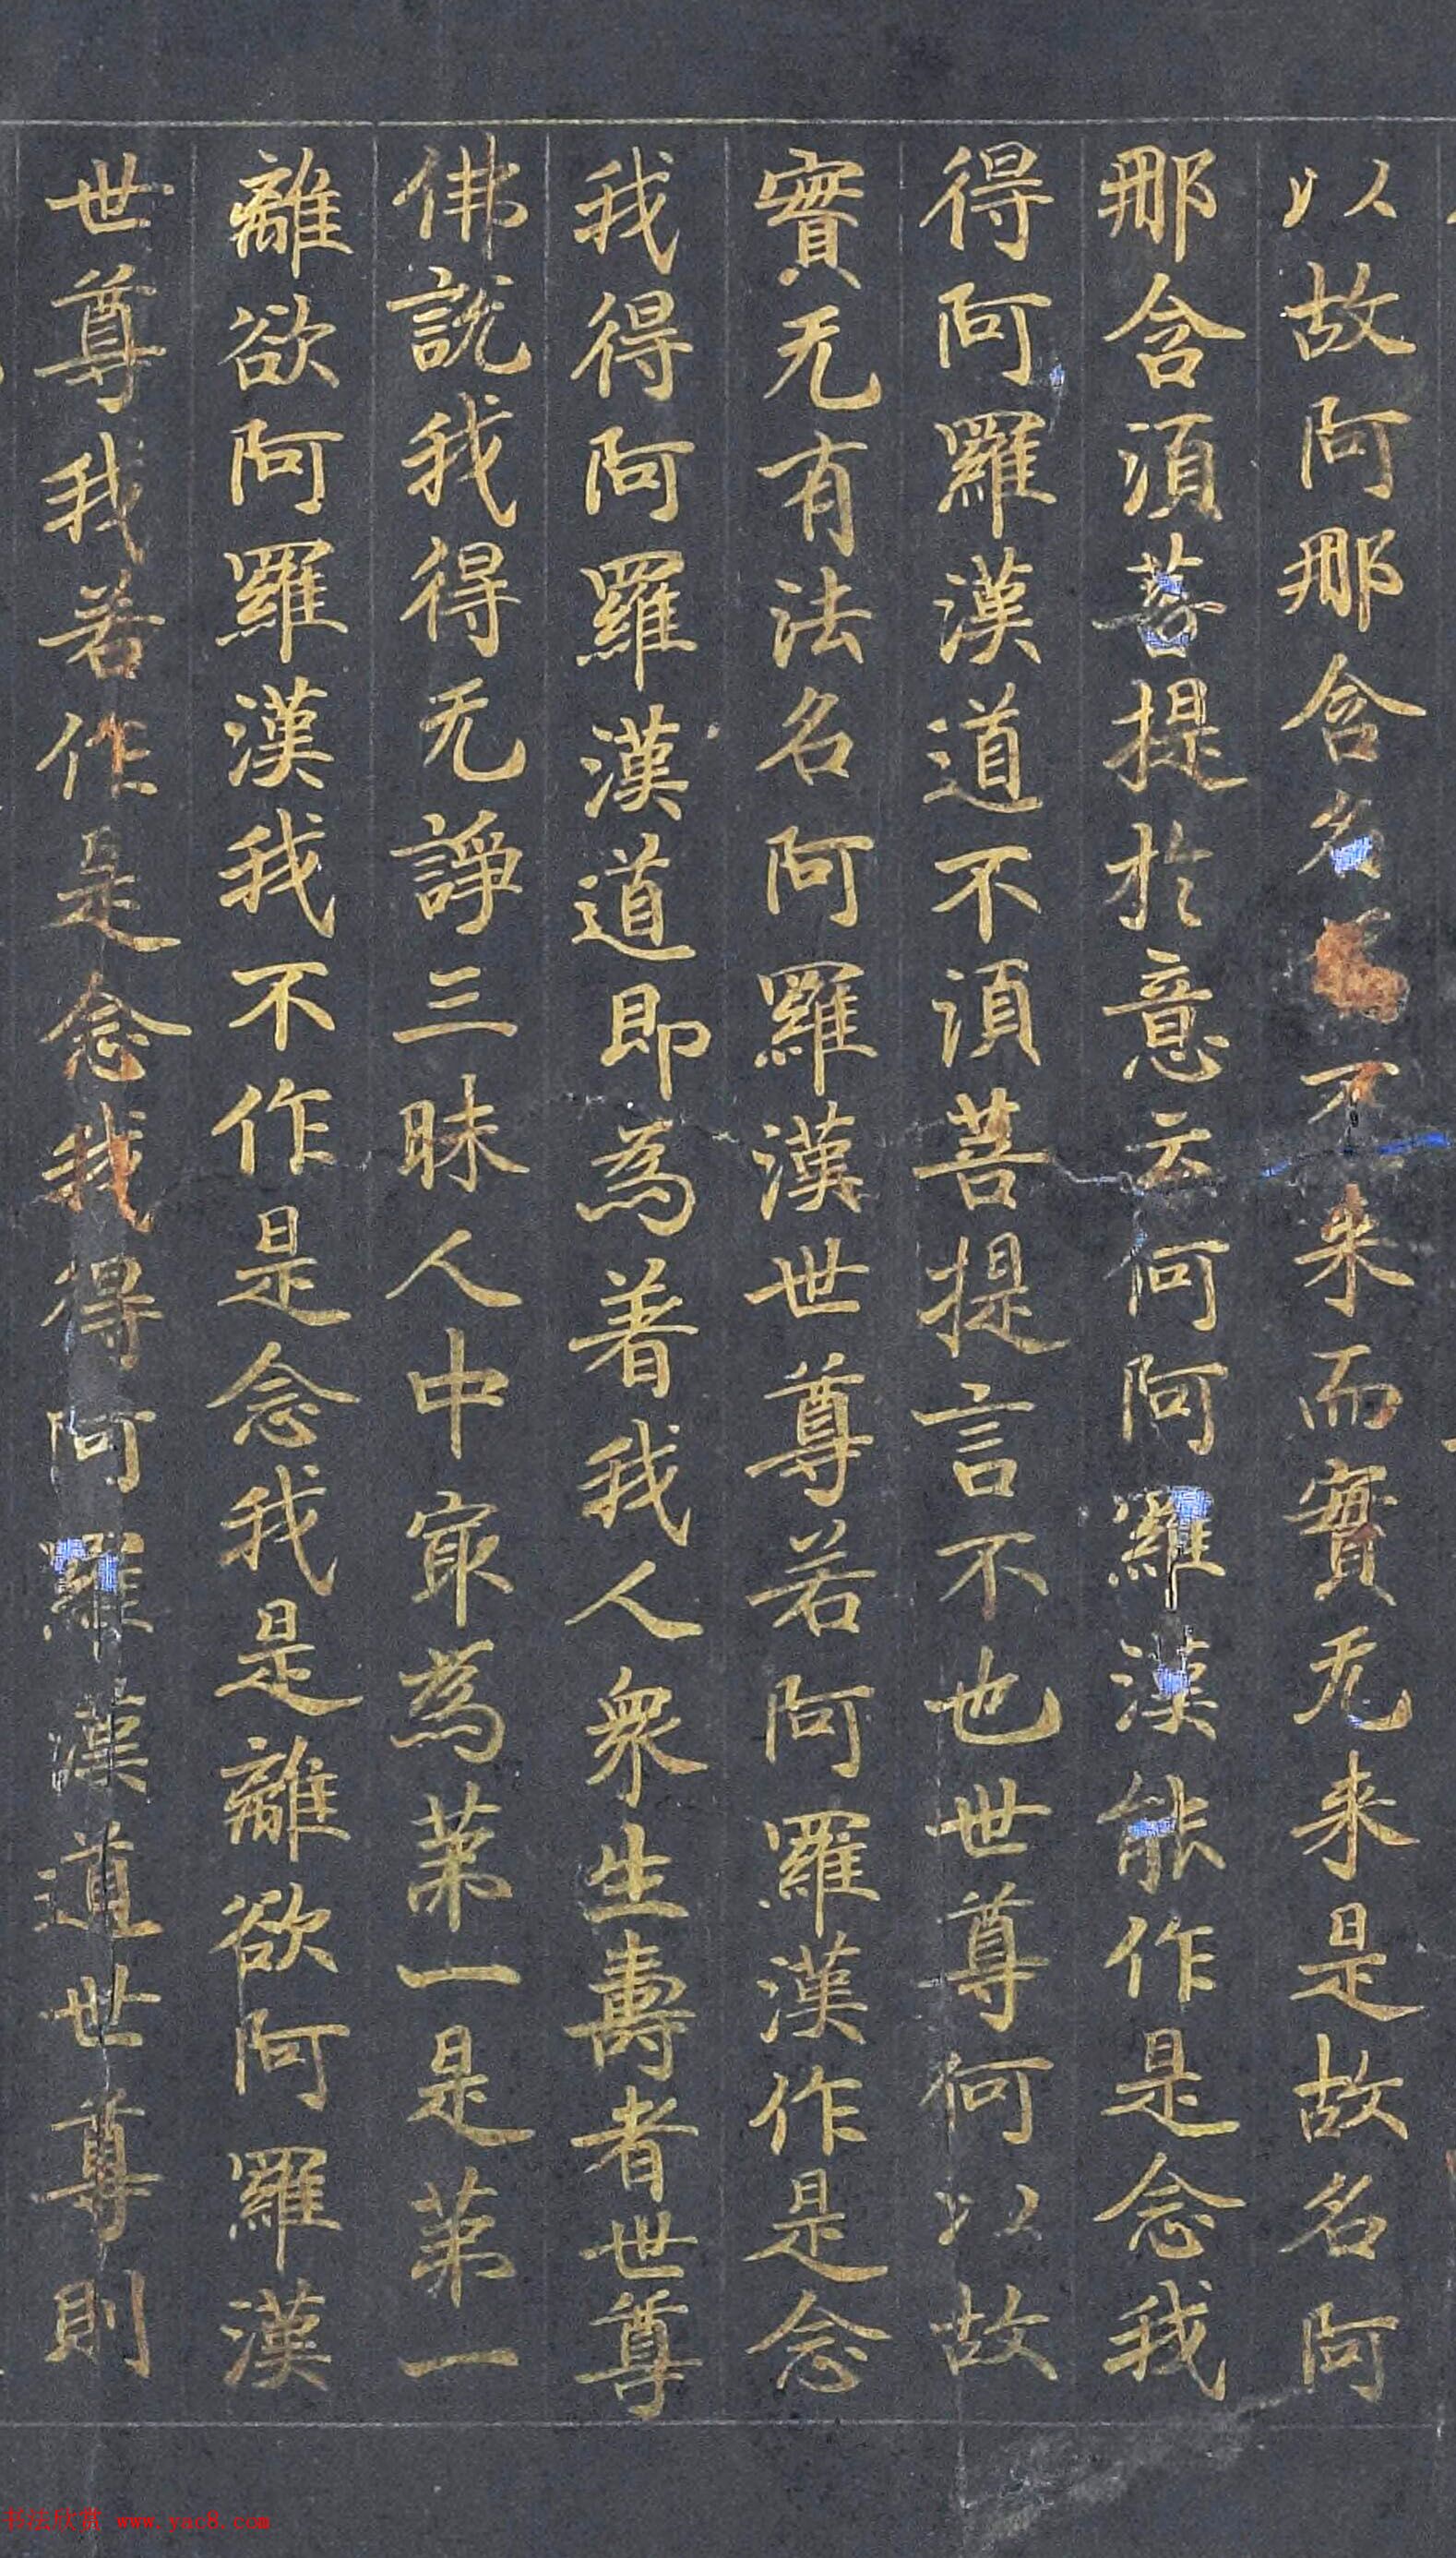 以故阿那含名為不来而實无来是故名阿
那含湏菩提於意云何阿羅漢能作是念我
得阿羅漢道不湏菩提言不也世尊何以故
實无有法名阿羅漢世尊若阿羅漢作是念
我得阿羅漢道即為著我人衆生壽者世尊
佛說我得无諍三昧人中㝡為苐一是苐一
離欲阿羅漢我不作是念我是離欲阿羅漢
世尊我若作是念我得阿羅漢道世尊則
书法欣赏 www.yac8.com